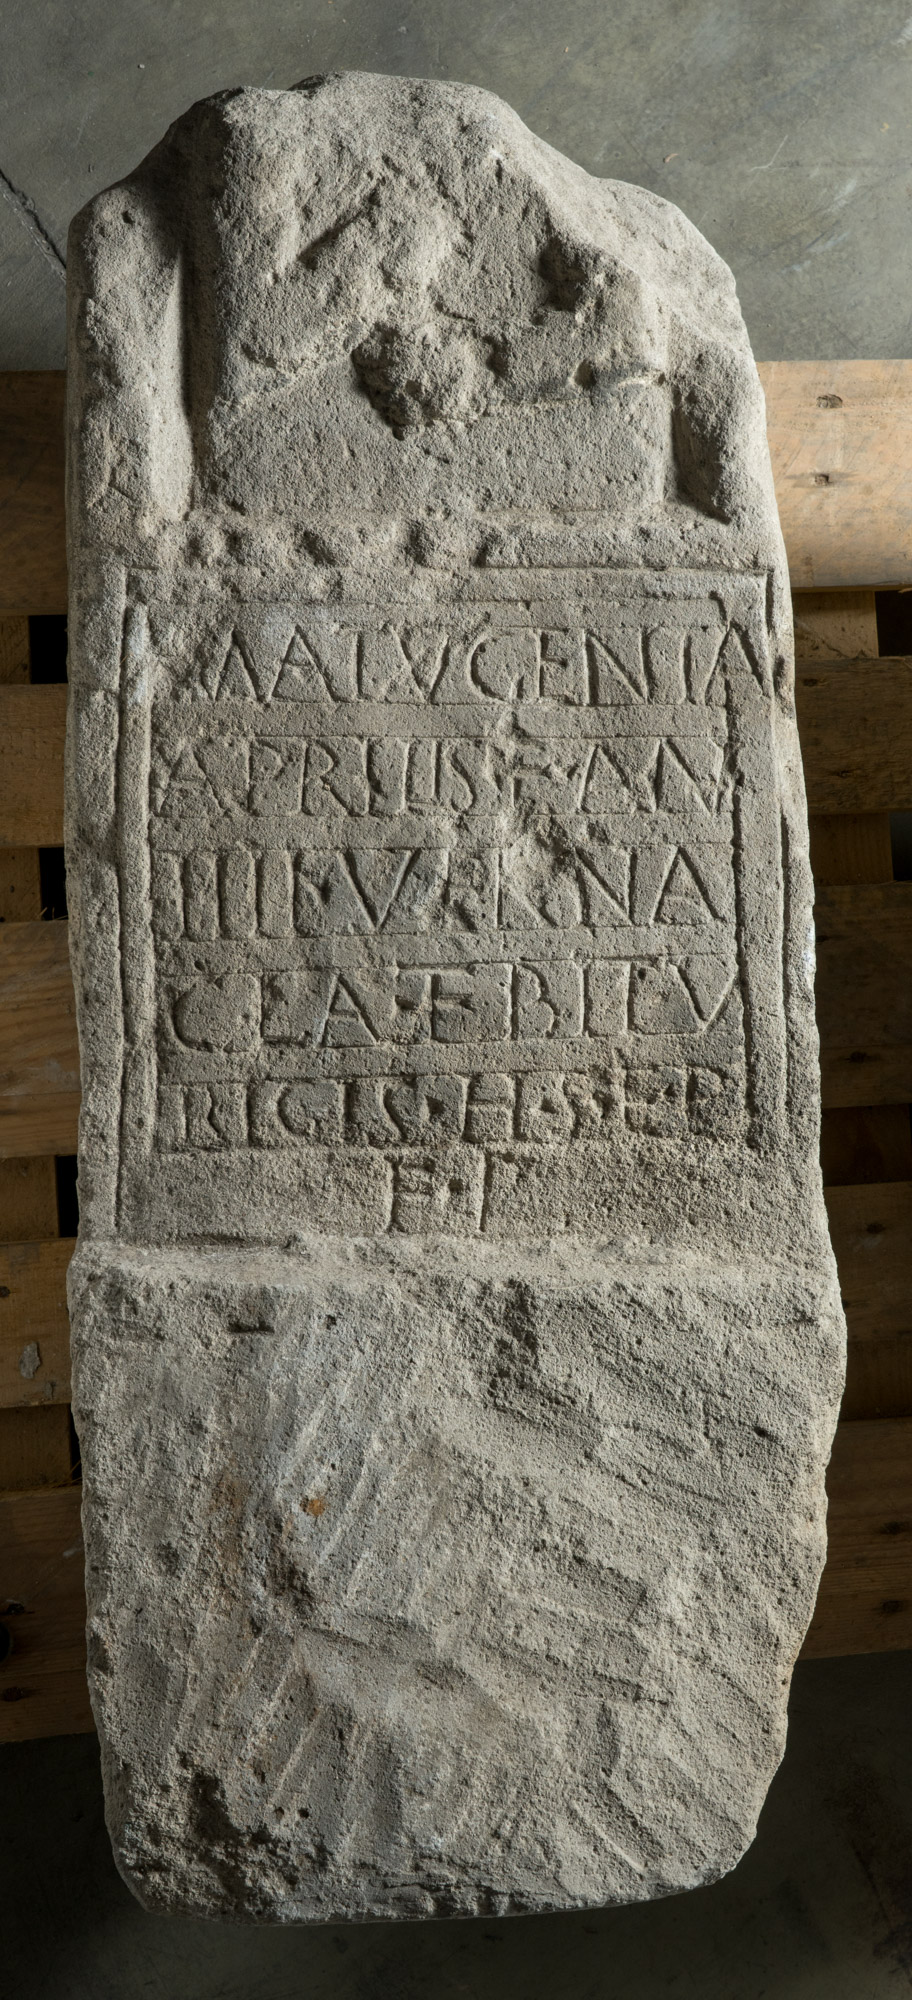 MATVGENIA
APRILIS F AN
IIII VERNA
CLA·EBITV
RIGIS·H·S·E·P
F·P